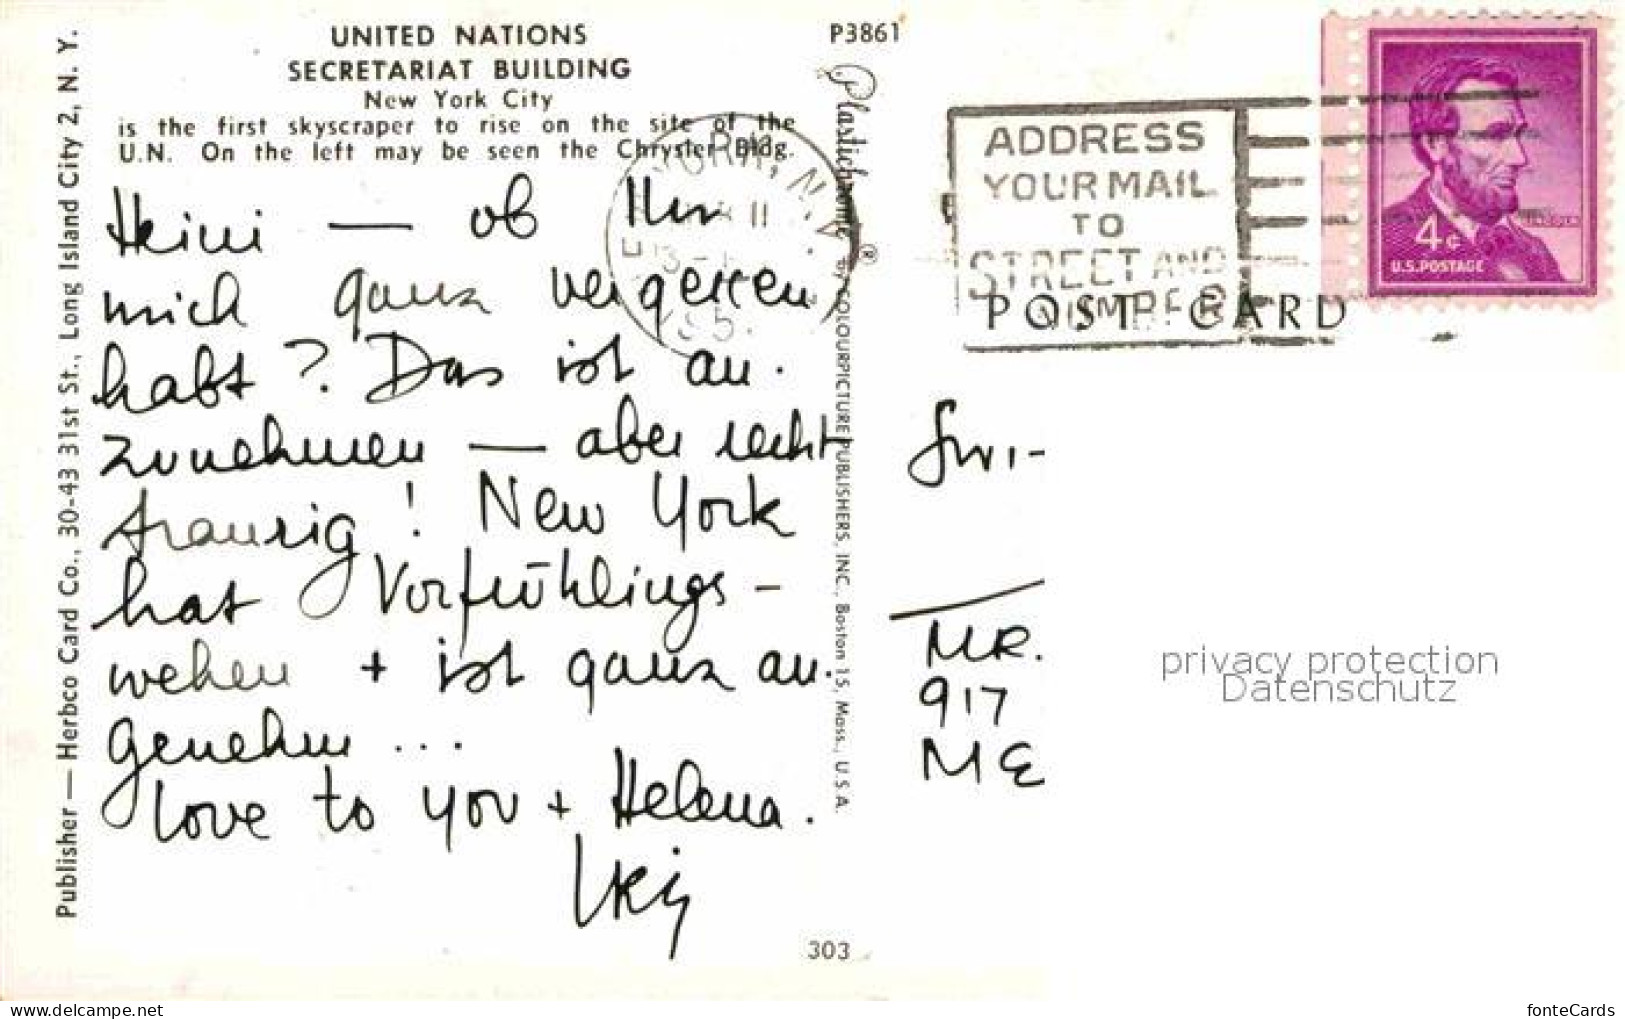 UNITED NATIONS
SECRETARIAT BUILDING
New York City
is the first skyscraper to rise on the site of the
U.N. On the left may be seen the Chrysler Bldg.
P3861
Heini — ob Ihr
mich ganz vergessen
habt? Das ist an.
zunehmen — aber recht
traurig! New York
hat Vorfrühlings-
wehen + ist ganz an.
genehm ...
love to you + Helena.
303
Publisher — Herbco Card Co., 30-43 31st St., Long Island City 2, N. Y.
Plastichrome ® by COLOURPICTURE PUBLISHERS, INC., Boston 15, Mass., U.S.A.
ADDRESS
YOUR MAIL
TO
STREET AND
NUMBER
POST CARD
4¢
U.S. POSTAGE
MR.
917
privacy protection
Datenschutz
delcampe.net
fonteCards